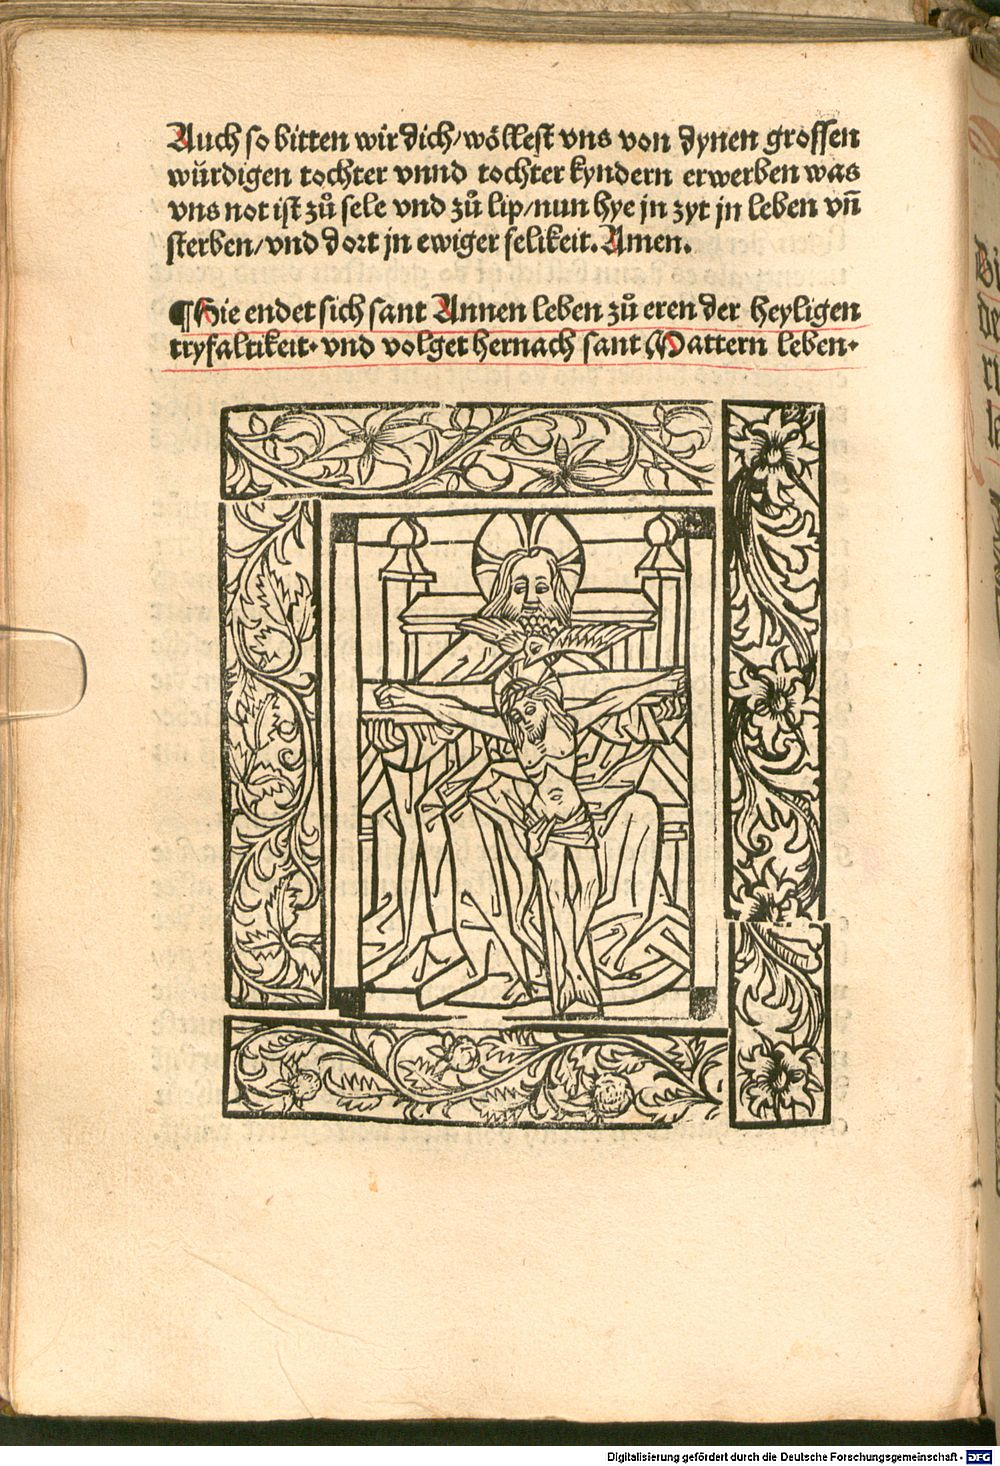 Auch so bitten wir dich/wöllest vns von dynen grossen
würdigen tochter vnnd tochter kyndern erwerben was
vns not ist zů sele vnd zů lip/nun hye jn zyt jn leben vn̄
sterben/vnd dort jn ewiger selikeit. Amen.
¶Hie endet sich sant Annen leben zů eren der heyligen
tryfaltikeit· vnd volget hernach sant Mattern leben·
Digitalisierung gefördert durch die Deutsche Forschungsgemeinschaft - DFG